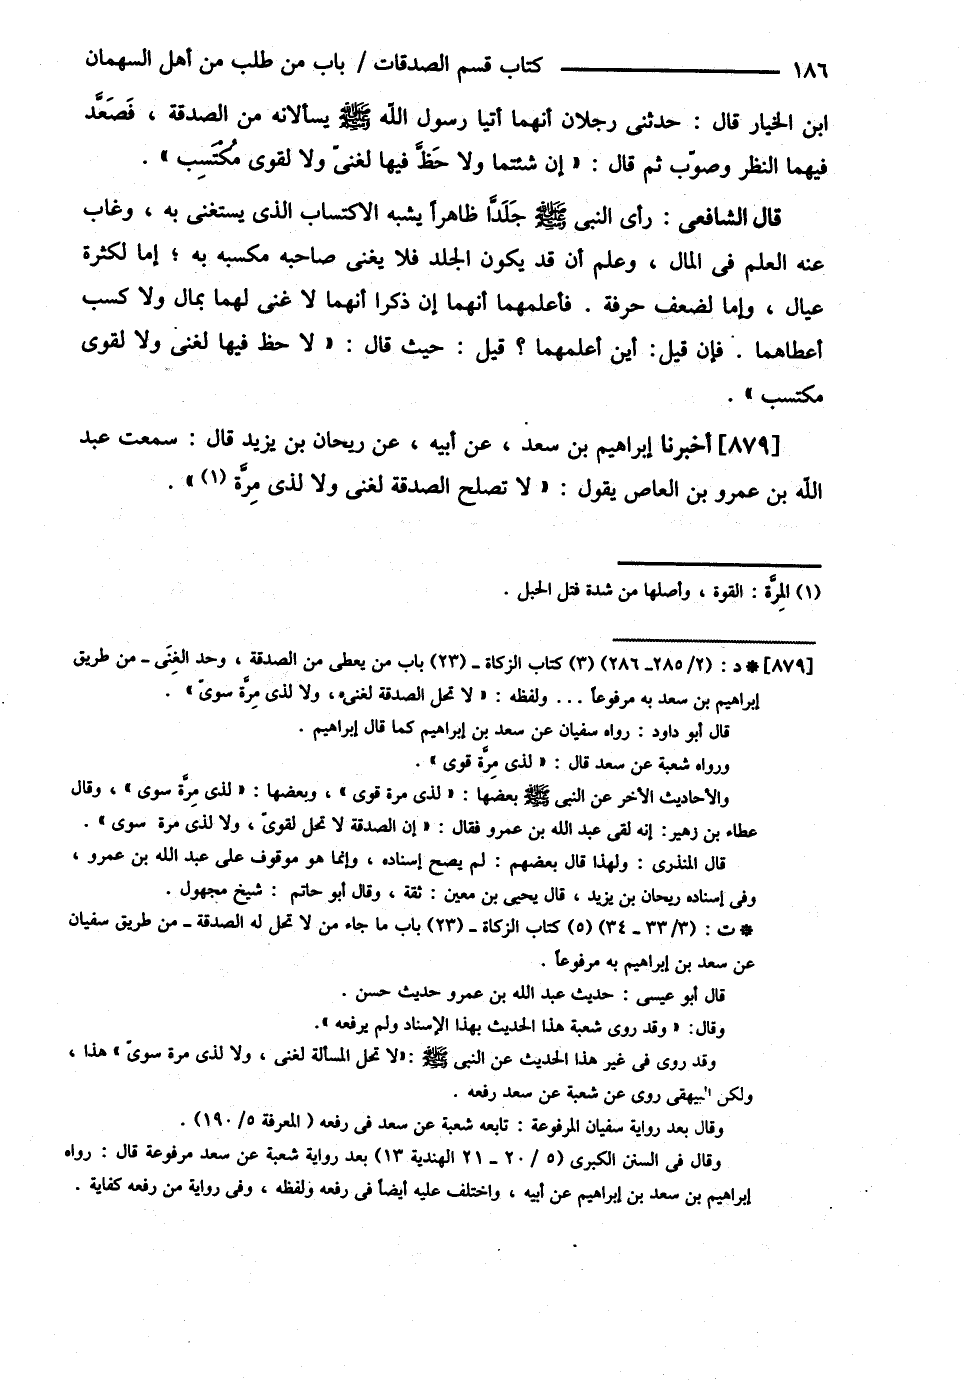 ١٨٦ ــــــــــــــــــ كتاب قسم الصدقات / باب من طلب من أهل السهمان
ابن الخيار قال : حدثنى رجلان أنهما أتيا رسول الله ﷺ يسألانه من الصدقة ، فَصَعَّد
فيهما النظر وصوّب ثم قال : « إن شئتما ولا حَظَّ فيها لغنىّ ولا لقوى مُكْتَسِب » .
قال الشافعى : رأى النبى ﷺ جَلَدًا ظاهراً يشبه الاكتساب الذى يستغنى به ، وغاب
عنه العلم فى المال ، وعلم أن قد يكون الجلد فلا يغنى صاحبه مكسبه به ؛ إما لكثرة
عيال ، وإما لضعف حرفة . فأعلمهما أنهما إن ذكرا أنهما لا غنى لهما بمال ولا كسب
أعطاهما . فإن قيل: أين أعلمهما ؟ قيل : حيث قال : « لا حظ فيها لغنى ولا لقوى
مكتسب » .
[٨٧٩] أخبرنا إبراهيم بن سعد ، عن أبيه ، عن ريحان بن يزيد قال : سمعت عبد
الله بن عمرو بن العاص يقول : « لا تصلح الصدقة لغنى ولا لذى مِرَّة (١) » .
(١) المِرَّة : القوة ، وأصلها من شدة فتل الحبل .
[٨٧٩] * د : (٢/ ٢٨٥ـ ٢٨٦) (٣) كتاب الزكاة ـ (٢٣) باب من يعطى من الصدقة ، وحد الغِنَى ـ من طريق
إبراهيم بن سعد به مرفوعاً ... ولفظه : « لا تحل الصدقة لغنى، ولا لذى مِرَّة سوىّ » .
قال أبو داود : رواه سفيان عن سعد بن إبراهيم كما قال إبراهيم .
ورواه شعبة عن سعد قال : « لذى مِرَّة قوى » .
والأحاديث الأخر عن النبى ﷺ بعضها : « لذى مرة قوى » ، وبعضها : « لذى مِرَّة سوى » ، وقال
عطاء بن زهير: إنه لقى عبد الله بن عمرو فقال : « إن الصدقة لا تحل لقوىّ ، ولا لذى مرة سوى » .
قال المنذرى : ولهذا قال بعضهم : لم يصح إسناده ، وإنما هو موقوف على عبد الله بن عمرو ،
وفى إسناده ريحان بن يزيد ، قال يحيى بن معين : ثقة ، وقال أبو حاتم : شيخ مجهول .
* ت : (٣/ ٣٣ ـ ٣٤) (٥) كتاب الزكاة ـ (٢٣) باب ما جاء من لا تحل له الصدقة ـ من طريق سفيان
عن سعد بن إبراهيم به مرفوعاً .
قال أبو عيسى : حديث عبد الله بن عمرو حديث حسن .
وقال: « وقد روى شعبة هذا الحديث بهذا الإسناد ولم يرفعه ».
وقد روى فى غير هذا الحديث عن النبى ﷺ :«لا تحل المسألة لغنى ، ولا لذى مرة سوىّ » هذا ،
ولكن البيهقى روى عن شعبة عن سعد رفعه .
وقال بعد رواية سفيان المرفوعة : تابعه شعبة عن سعد فى رفعه ( المعرفة ٥/ ١٩٠) .
وقال فى السنن الكبرى (٥ / ٢٠ ـ ٢١ الهندية ١٣) بعد رواية شعبة عن سعد مرفوعة قال : رواه
إبراهيم بن سعد بن إبراهيم عن أبيه ، واختلف عليه أيضاً فى رفعه ولفظه ، وفى رواية من رفعه كفاية .